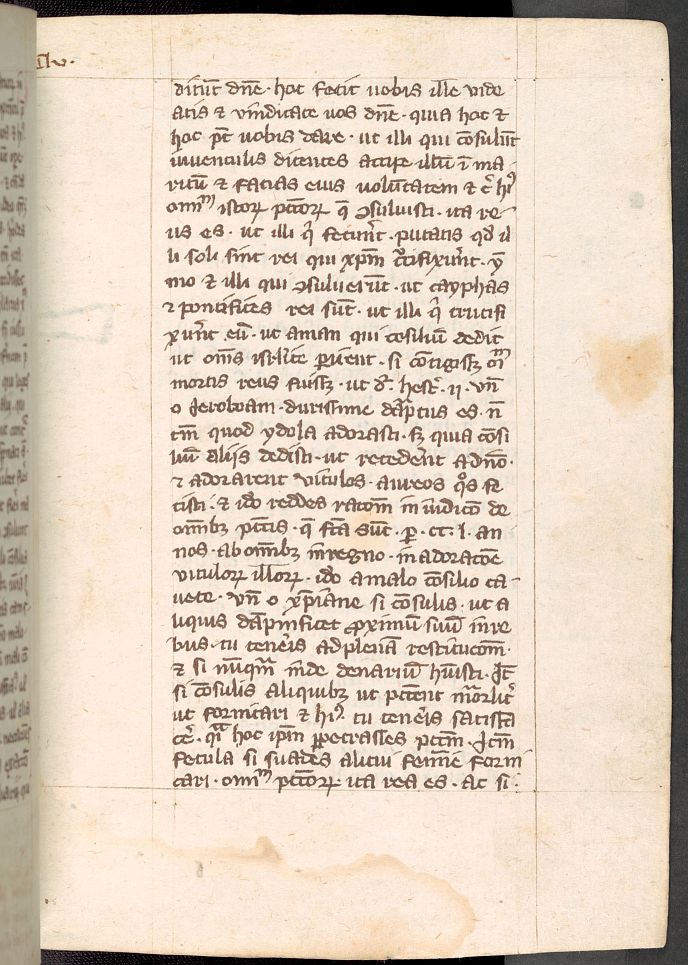 ditūt dn̄e · hoc fecit uobis ille vide
atis ⁊ vindicate uos dn̄e · quia hoc ⁊
hoc pt̄ uobis dare · ut illi qui cōsulūt
iuuenculis dicentes accipe illū ī ma
ritū ⁊ facias eius uolūtatem ⁊ c̄
istoꝝ pctōꝝ q̄ ꝯsuluisti · ita re
us es · ut illi qͥ fecūt · putatis qd̄ il
li soli sint rei qui xp̄m crifixūnt ·
mo ⁊ illi qui ꝯsuluerūt · ut cayphas
⁊ pontifices rei sūt · ut illi qͥ crucifi
xūnt eū · ut aman qui cōsiliū dedit
ut om̄s isrl̄ite perirent · si cōtigissꝫ
mortis reus fuissꝫ · ut dr̄ hest̄ · ij · vn̄
o Jeroboam · durissime dāpnatus es · n̄
tm̄ quod ydola adorasti · sꝫ quia cōsi
liū alijs dedisti · ut recederēt a dn̄o ·
⁊ adorarent vitulos · aureos qͦs fe
cisti · ⁊ iō reddes ratōm in iudico de
omībꝫ pctīs · q̄ fc̄a sūt · ꝑ · cc · l · an
nos · ab omībꝫ in regno · in adoratōe
vituloꝝ illoꝝ · iō a malo cōsilio ca
uete · vn̄ o xp̄iane si cōsulis · ut a
liquis dāpnificet proximū suū in re
bus · tu teneris ad plenā restitucōm ·
⁊ si nūqm̄ inde denariū hūisti · Jt̄
si cōsulis aliquibꝫ ut pctent mortlit̄
ut fornicari ⁊ hiꝰ · tu teneris satisfa
ce · hoc ip̄m ꝑpetrasses pctm̄ · Jtm̄
fetula si suades alicui femīe forni
cari · pctōꝝ · ita rea es · ac si ·